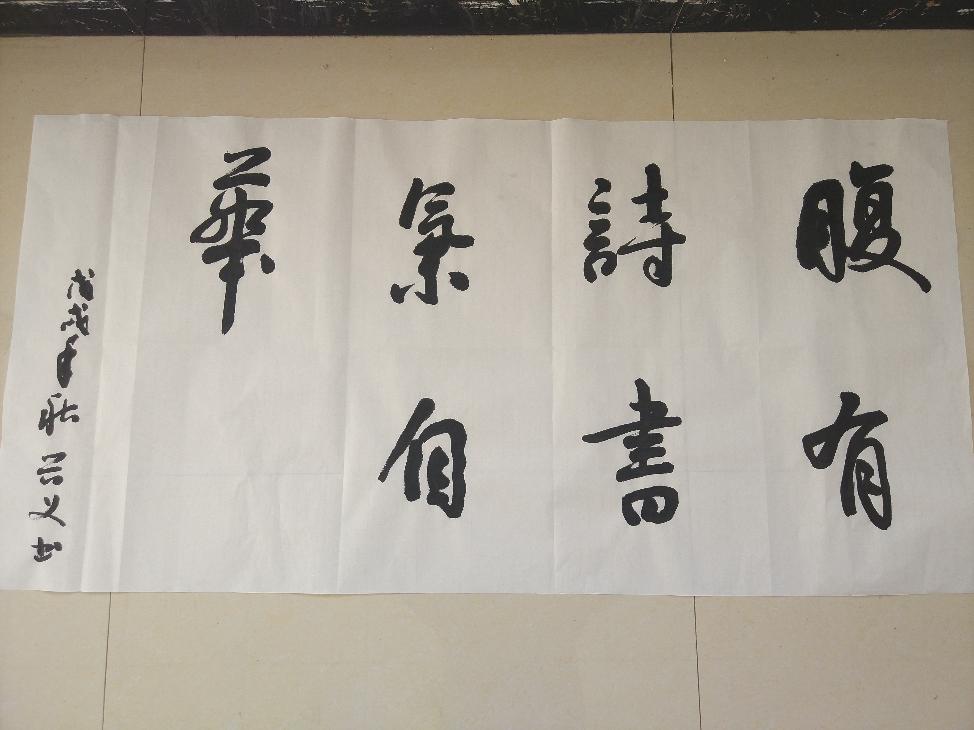 腹有
詩書
氣自
華
戊戌年秋 義书